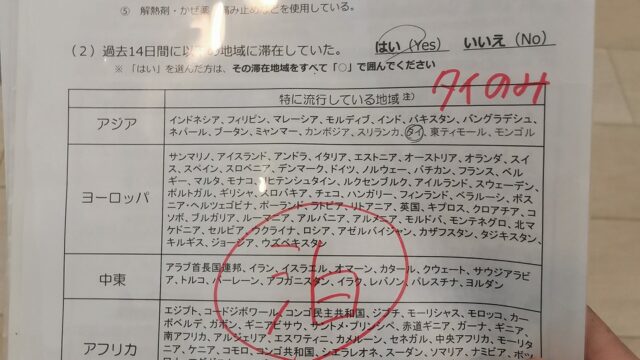 ⑤ 解熱剤・かぜ薬・痛み止めなどを使用している。
(2)過去14日間に以下の地域に滞在していた。 はい(Yes) いいえ(No)
※「はい」を選んだ方は、その滞在地域をすべて「○」で囲んでください
タイのみ
特に流行している地域 注)
アジア
インドネシア、フィリピン、マレーシア、モルディブ、インド、パキスタン、バングラデシュ、
ネパール、ブータン、ミャンマー、カンボジア、スリランカ、タイ、東ティモール、モンゴル
ヨーロッパ
サンマリノ、アイスランド、アンドラ、イタリア、エストニア、オーストリア、オランダ、スイ
ス、スペイン、スロベニア、デンマーク、ドイツ、ノルウェー、バチカン、フランス、ベル
ギー、マルタ、モナコ、リヒテンシュタイン、ルクセンブルク、アイルランド、スウェーデン、
ポルトガル、ギリシャ、スロバキア、チェコ、ハンガリー、フィンランド、ベラルーシ、ボス
ニア・ヘルツェゴビナ、ポーランド、ラトビア、リトアニア、英国、キプロス、クロアチア、コ
ソボ、ブルガリア、ルーマニア、アルバニア、アルメニア、モルドバ、モンテネグロ、北マ
ケドニア、セルビア、ウクライナ、ロシア、アゼルバイジャン、カザフスタン、タジキスタン、
キルギス、ジョージア、ウズベキスタン
中東
アラブ首長国連邦、イラン、イスラエル、オマーン、カタール、クウェート、サウジアラビ
ア、トルコ、バーレーン、アフガニスタン、イラク、レバノン、パレスチナ、ヨルダン
アフリカ
エジプト、コートジボワール、コンゴ民主共和国、ジブチ、モーリシャス、モロッコ、カー
ボベルデ、ガボン、ギニアビサウ、サントメ・プリンシペ、赤道ギニア、ガーナ、ギニア、
南アフリカ、アルジェリア、エスワティニ、カメルーン、セネガル、中央アフリカ、モーリタ
ニア、ケニア、コモロ、コンゴ共和国、シエラレオネ、スーダン、ソマリア、ナミビア、ボツ